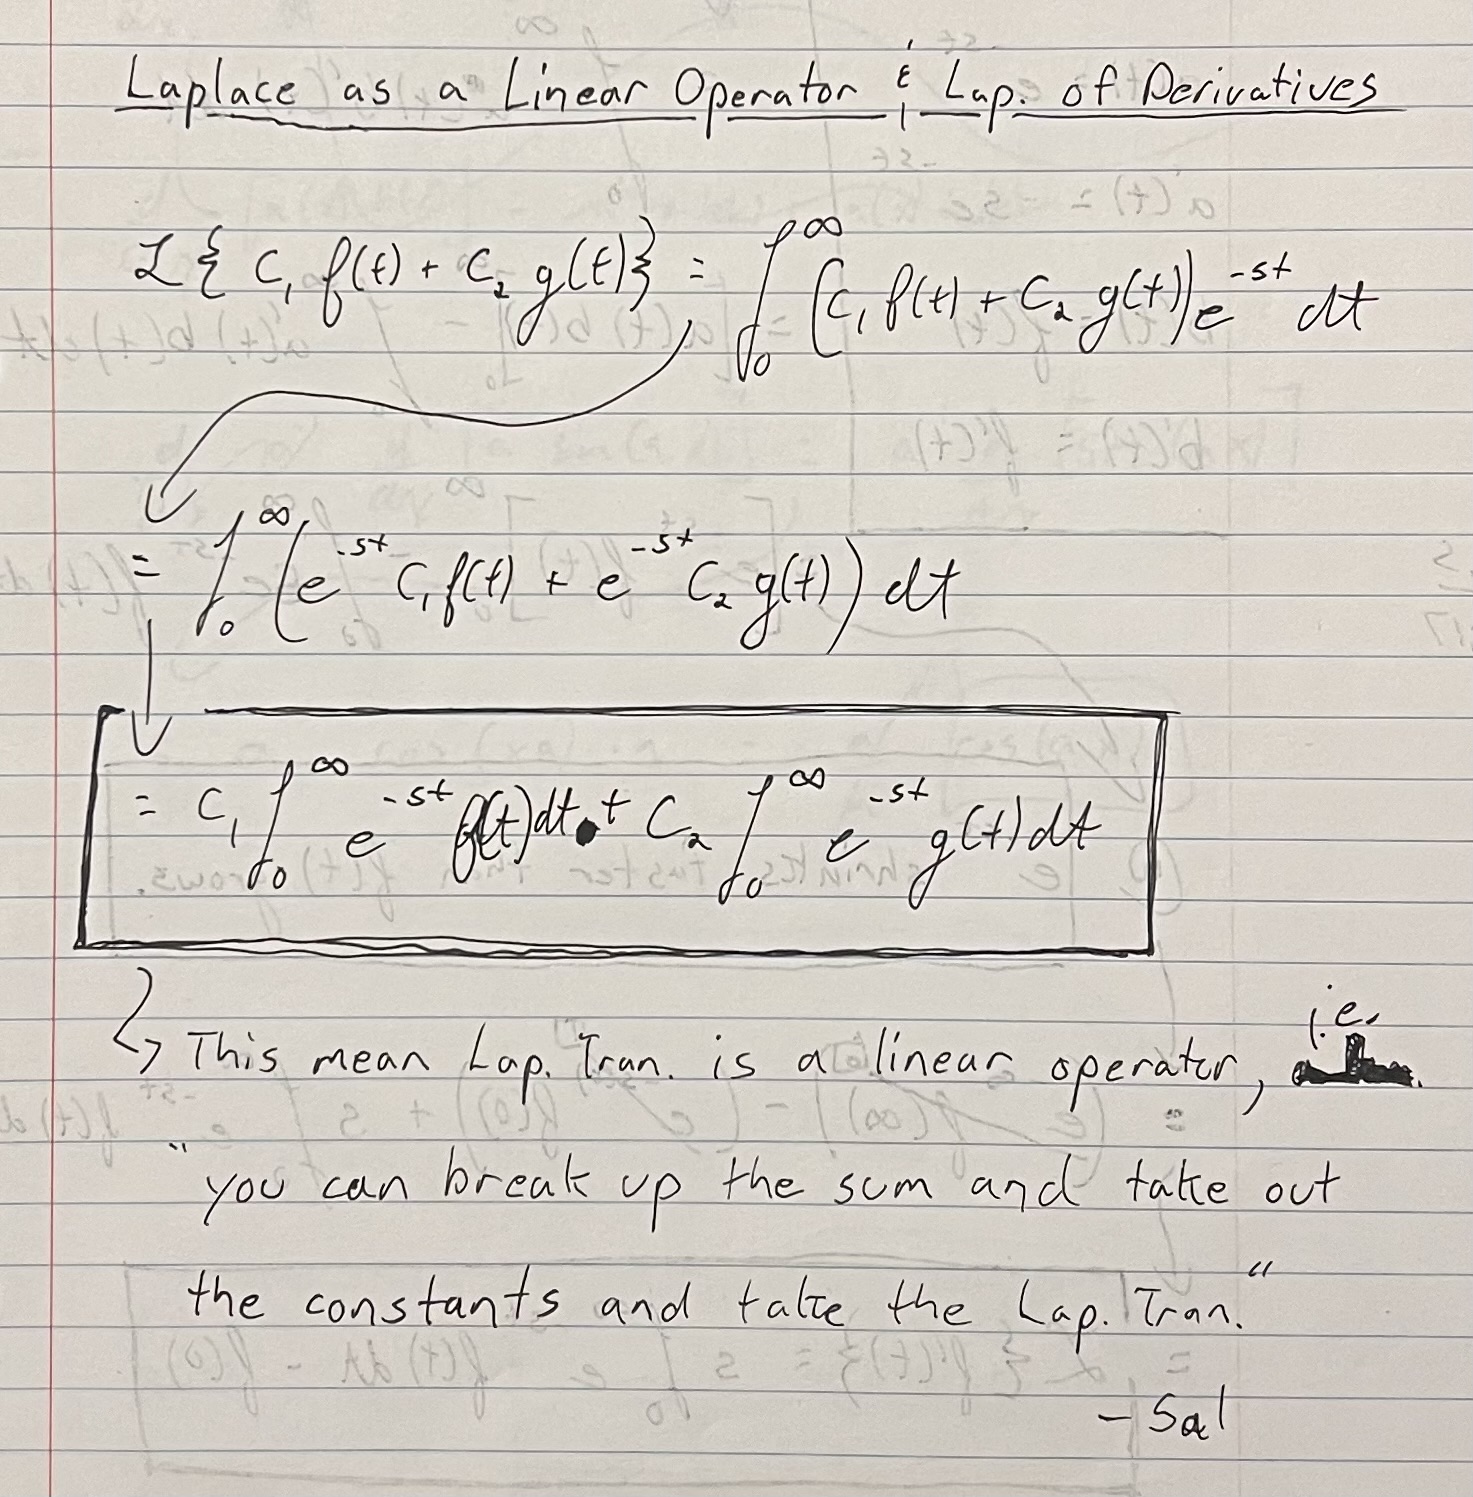 Laplace as a Linear Operator & Lap. of Derivatives
ℒ{ C₁ f(t) + C₂ g(t)} = ∫₀^∞ (C₁ f(t) + C₂ g(t)) e^-st dt
= ∫₀^∞ (e^-st C₁ f(t) + e^-st C₂ g(t)) dt
= C₁ ∫₀^∞ e^-st f(t) dt + C₂ ∫₀^∞ e^-st g(t) dt
i.e.
This mean Lap. Tran. is a linear operator,
"you can break up the sum and take out
the constants and take the Lap. Tran."
- Sal